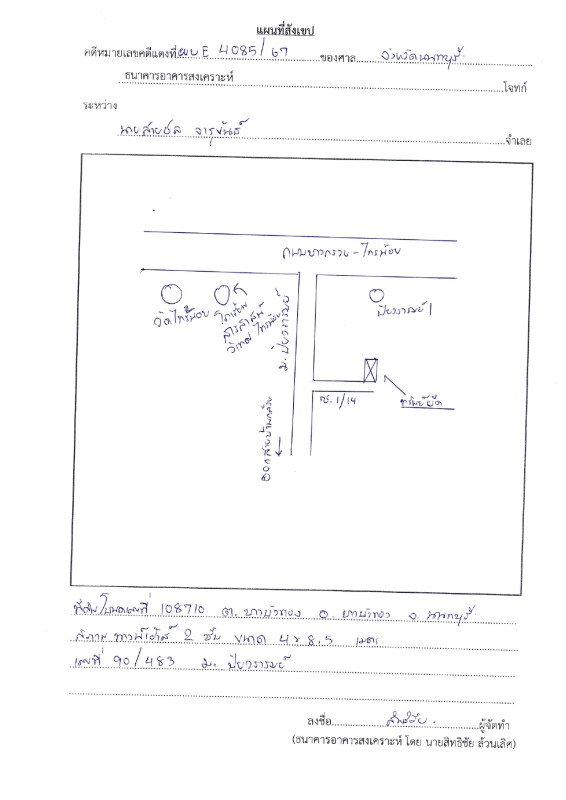 แผนที่สังเขป
คดีหมายเลขคดีแดงที่ ผบE 4085/67 ของศาล จังหวัดนนทบุรี
ธนาคารอาคารสงเคราะห์ โจทก์
ระหว่าง
นายสายชล จารุขันธ์ จำเลย
ถนนบางกรวย - ไทรน้อย
วัดไทรน้อย
โรงเรียน
สารสาสน์
วิเทศ ไทรน้อย
ม. ปิยวรารมย์
ปิยวรารมย์ 1
ซ. 1/14
ทรัพย์ยึด
ออกสาย
ที่ดินโฉนดเลขที่ 108710 ต. บางบัวทอง อ. บางบัวทอง จ นนทบุรี
สภาพ ทาวน์เฮ้าส์ 2 ชั้น ขนาด 4 x 8.5 เมตร
เลขที่ 90/483 ม. ปิยวรารมย์
ลงชื่อ สิทธิชัย ผู้จัดทำ
(ธนาคารอาคารสงเคราะห์ โดย นายสิทธิชัย ล้วนเลิศ)